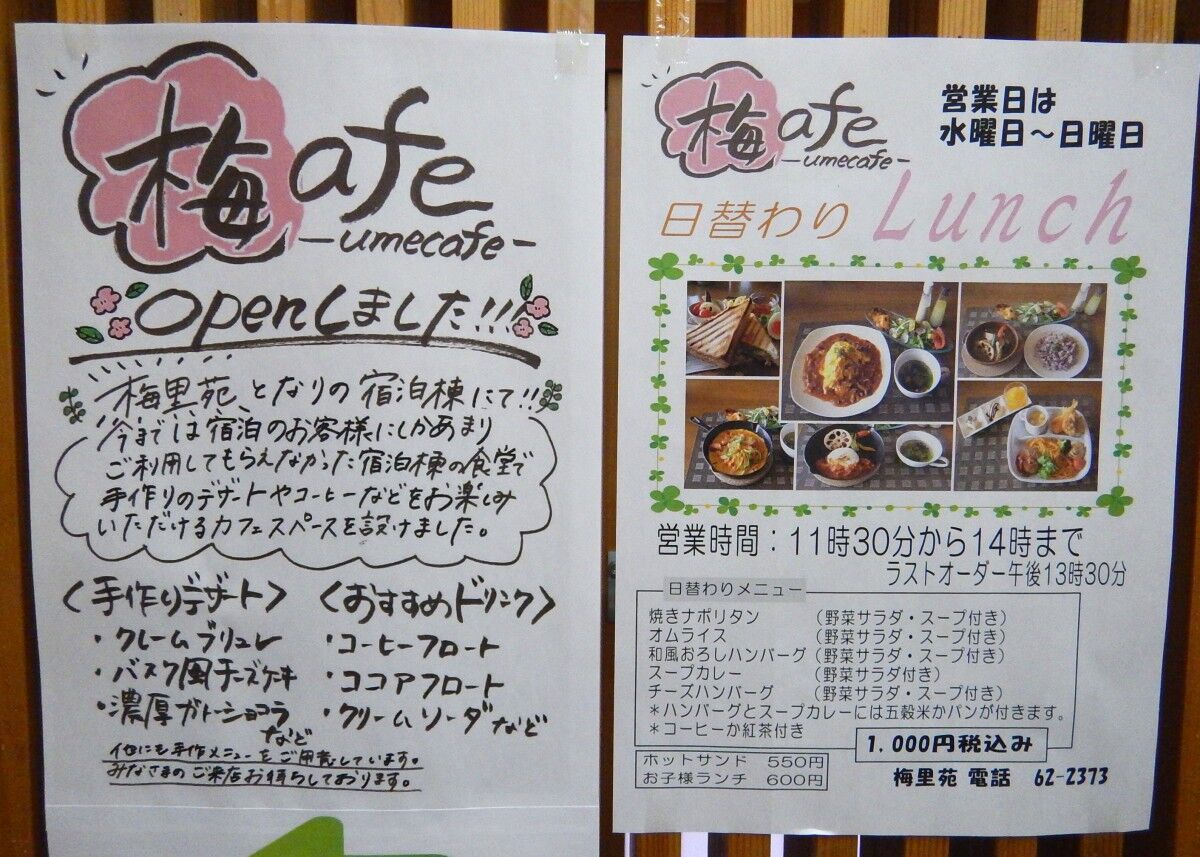 梅afe
-umecafe-
openしました!!!
梅里苑、となりの宿泊棟にて!!
今までは宿泊のお客様にしかあまり
ご利用してもらえなかった宿泊棟の食堂で
手作りのデザートやコーヒーなどをお楽しみ
いただけるカフェスペースを設けました。
〈手作りデザート〉
・クレームブリュレ
・バスク風チーズケーキ
・濃厚ガトーショコラ
など
〈おすすめドリンク〉
・コーヒーフロート
・ココアフロート
・クリームソーダなど
他にも手作メニューをご用意しています。
みなさまのご来店お待ちしております。
梅afe
-umecafe-
営業日は
水曜日～日曜日
日替わり Lunch
営業時間：11時30分から14時まで
ラストオーダー午後13時30分
日替わりメニュー
焼きナポリタン （野菜サラダ・スープ付き）
オムライス （野菜サラダ・スープ付き）
和風おろしハンバーグ（野菜サラダ・スープ付き）
スープカレー （野菜サラダ付き）
チーズハンバーグ （野菜サラダ・スープ付き）
＊ハンバーグとスープカレーには五穀米かパンが付きます。
＊コーヒーか紅茶付き
1.000円税込み
ホットサンド 550円
お子様ランチ 600円
梅里苑 電話 62-2373